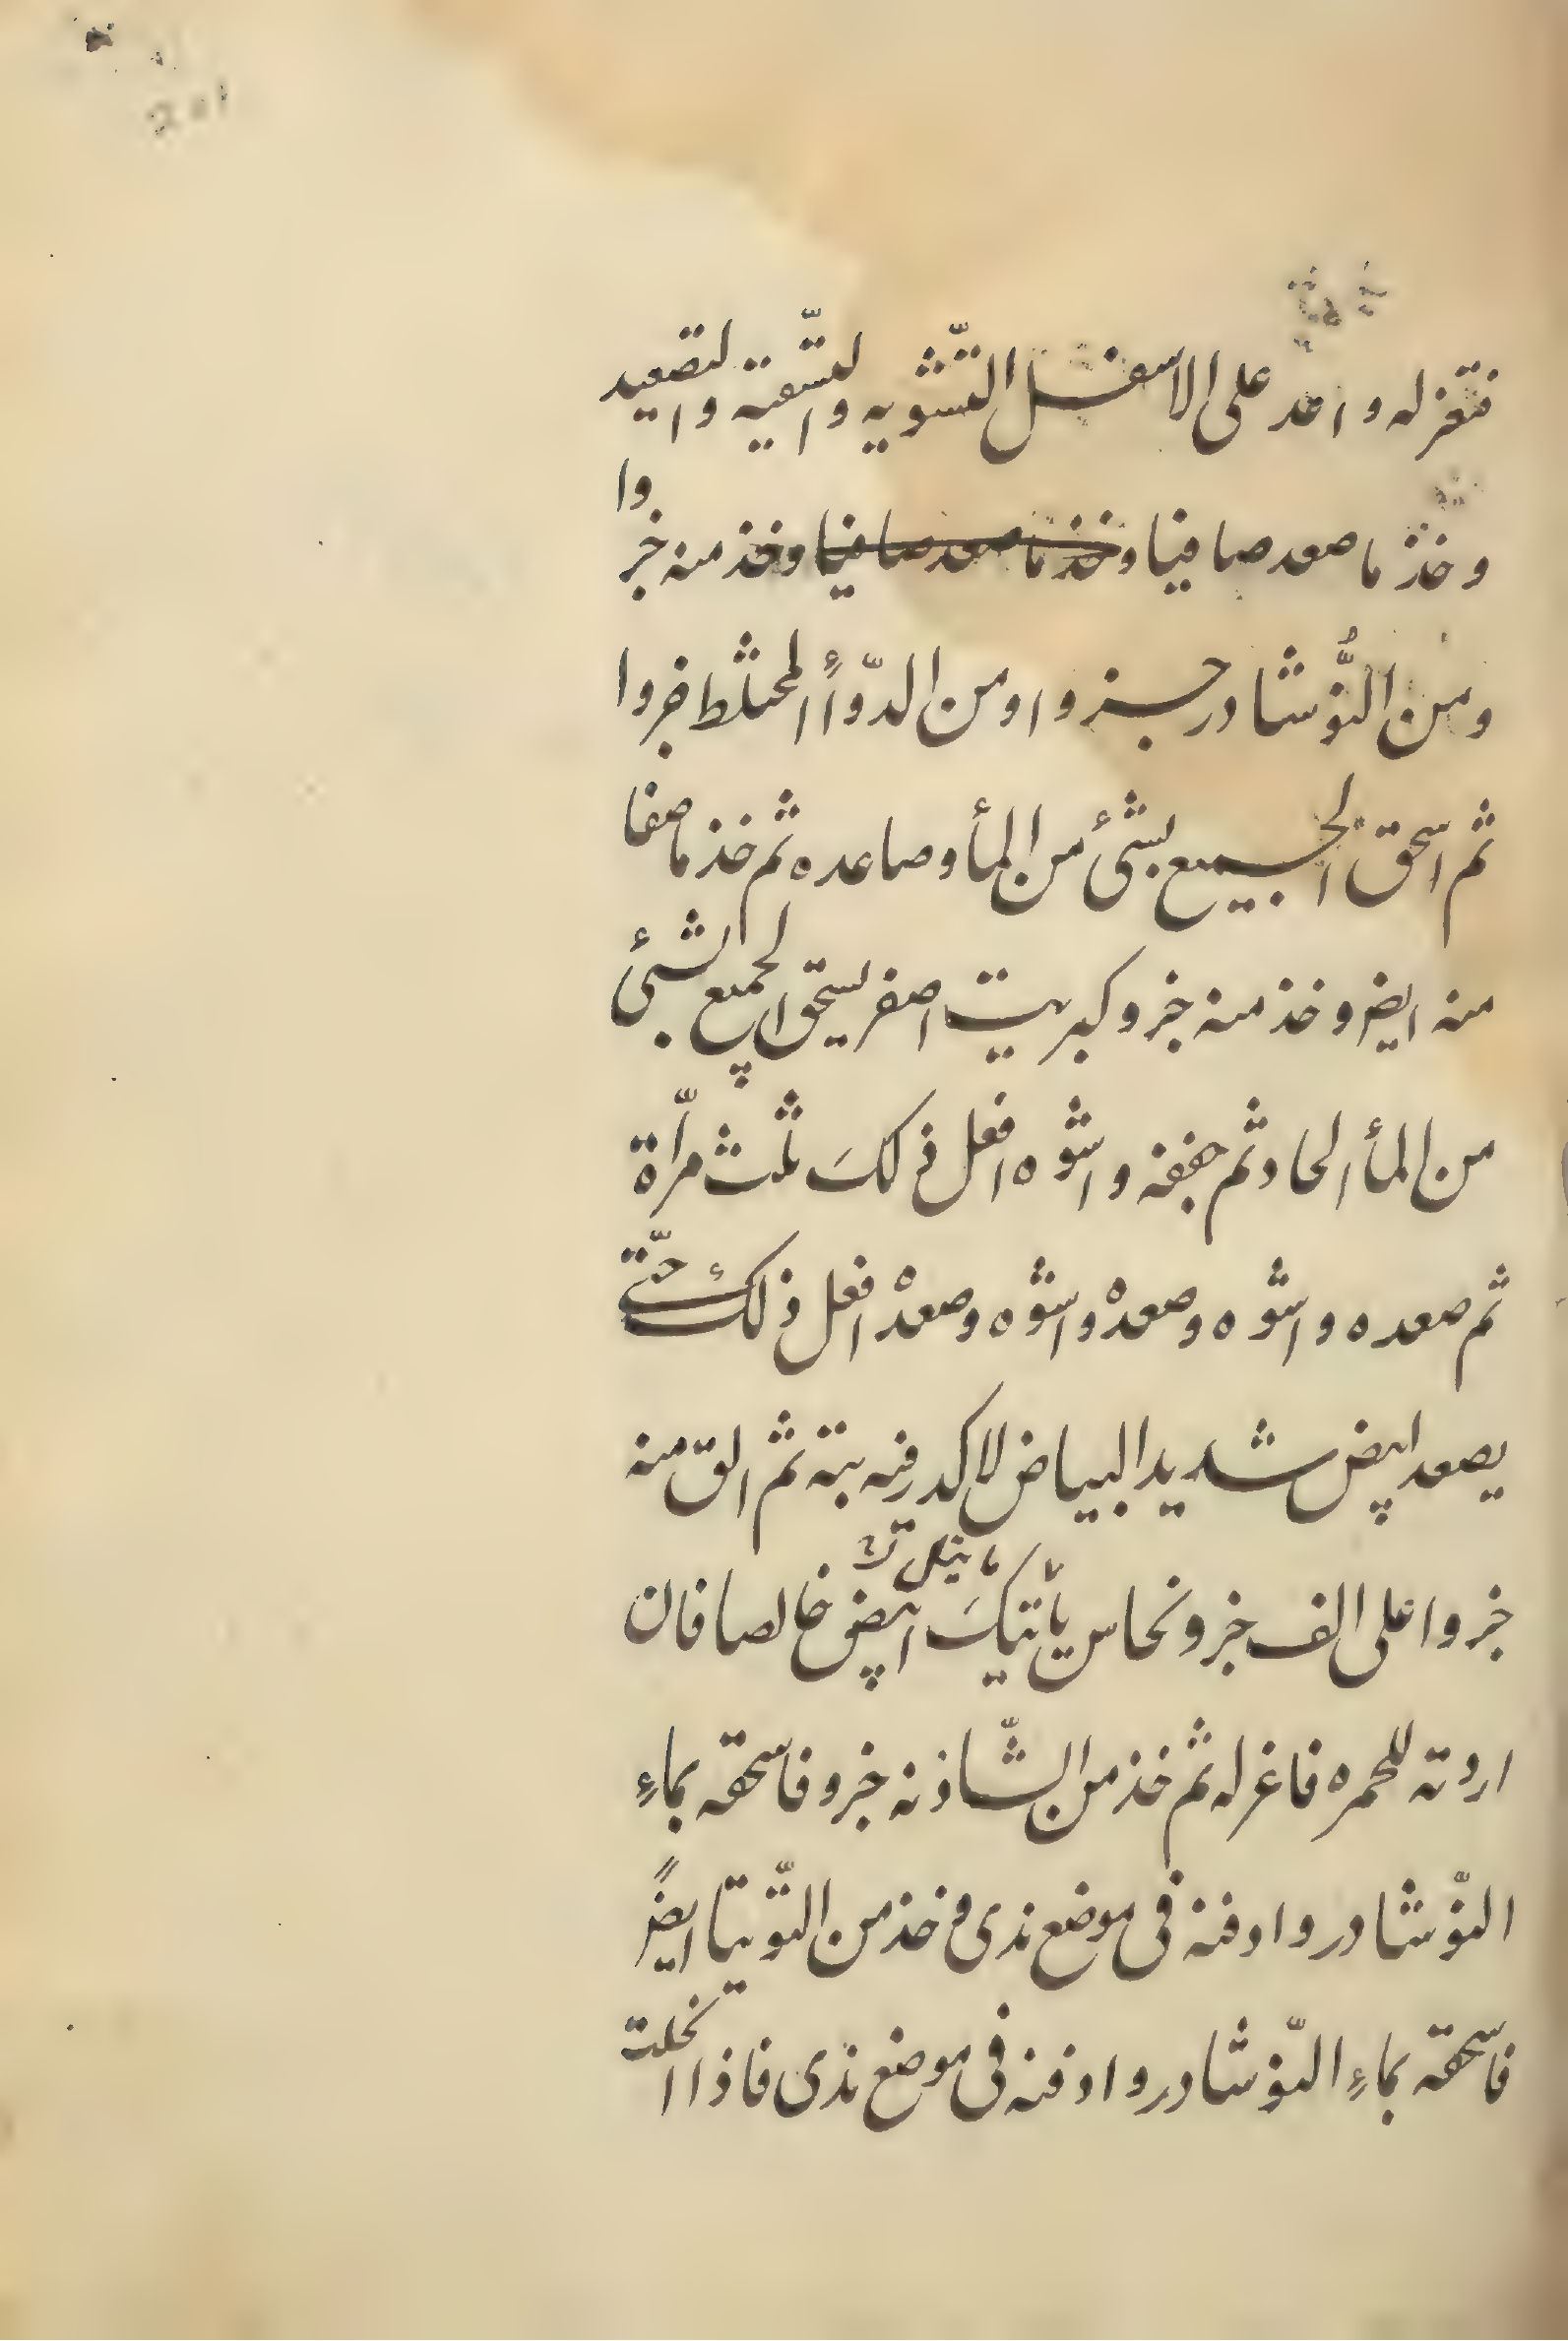 فتعزله واعد على الاسفل التّشويه والتّسقية والتصعيد
وخذ ما صعد صافيا وخذ ما صعد صافيا وخذ منه جزوا
ومن النُّوشادر جزوا ومن الدّوأ المختلط جزوا
ثم اسحق الجميع بشئ من المأ وصاعده ثم خذ ما صفا
منه ايضا وخذ منه جزو كبريت اصفر يسحق الجميع بشئ
من المأ الحاد ثم جففه واشوه افعل ذلكَ ثلث مرّاة
ثم صعده واشوه وصعدْه واشوه وصعدْه افعل ذلك حتّى
يصعد ابيض شديد البياض لا كدر فيه بتة ثم الق منه
جزوا على الف جزو نحاس يأتيكَ ابيض خالصا فان
اردته للحمره فاعزله ثم خذ من الشّاذنه جزو فاسحقه بماءِ
النّوشادر وادفنه فى موضع ندى وخذ من التّوتيا ايضاً
فاسحقه بماءِ النّوشادر وادفنه فى موضع ندى فاذا انحلت